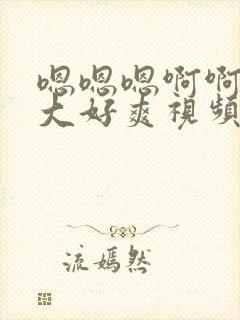 嗯嗯嗯啊啊
大好爽視頻
流嫣然